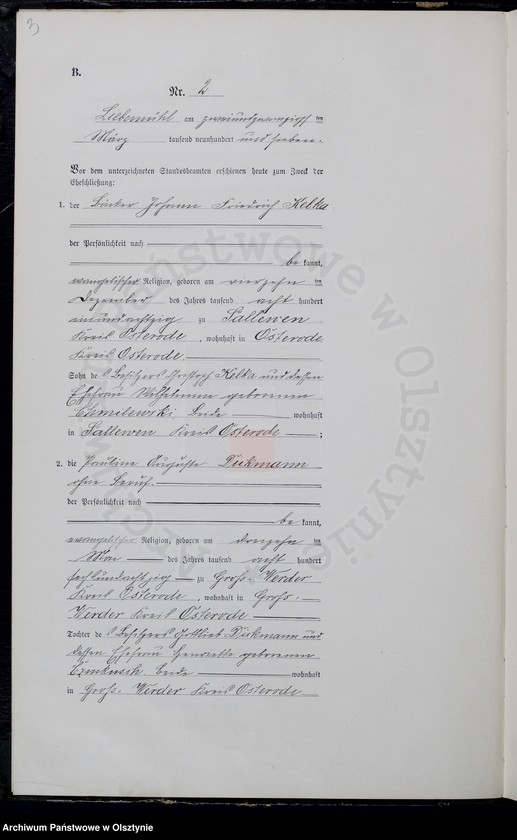 3
B.
Nr. 2
Liebemühl am zweiundzwanzigsten
März tausend neunhundert und sieben.
Vor dem unterzeichneten Standesbeamten erschienen heute zum Zweck der
Eheschließung:
1. der Bäcker Johann Friedrich Kelka
der Persönlichkeit nach
be kannt,
evangelischer Religion, geboren am vierzehn ten
Dezember des Jahres tausend acht hundert
einundachtzig zu Sallewen
Kreis Osterode, wohnhaft in Osterode
Kreis Osterode
Sohn des Besitzers Kelka und dessen
Ehefrau Wilhelmine geborenen
Chmilewski beide wohnhaft
in Sallewen Kreis Osterode;
2. die Pauline Auguste Dickmann
ohne Beruf.
der Persönlichkeit nach
be kannt,
evangelischer Religion, geboren am dreizehn ten
Mai des Jahres tausend acht hundert
sechsundachtzig zu Groß-Werder
Kreis Osterode, wohnhaft in Groß-
Werder Kreis Osterode
Tochter des Besitzers Gottlieb Dickmann und
dessen Ehefrau Henriette geborenen
beide wohnhaft
in Groß-Werder Kreis Osterode
Archiwum Państwowe w Olsztynie
Archiwum Państwowe w Olsztynie